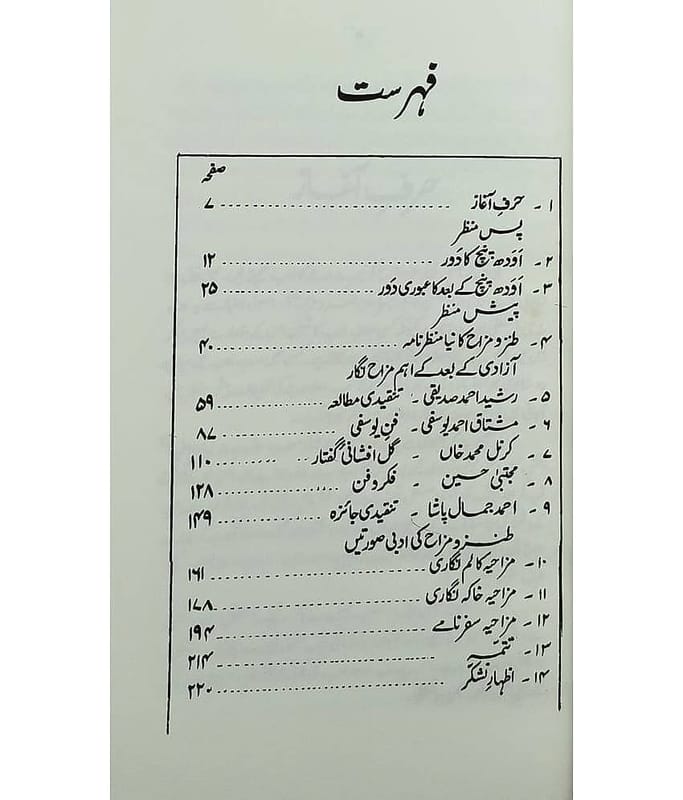 فہرست
صفحہ
۱ - حرفِ آغاز ............ ۷
پس منظر
۲ - اَودھ پنچ کا دَور ............ ۱۲
۳ - اَودھ پنچ کے بعد کا عبوری دَور ............ ۲۵
پیش منظر
۴ - طنز و مزاح کا نیا منظر نامہ ............ ۴۰
آزادی کے بعد کے اہم مزاح نگار
۵ - رشید احمد صدیقی - تنقیدی مطالعہ ............ ۵۹
۶ - مشتاق احمد یوسفی - فنِ یوسفی ............ ۸۷
۷ - کرنل محمد خاں - گل افشانی گفتار ............ ۱۱۰
۸ - مجتبیٰ حسین - فکر و فن ............ ۱۲۸
۹ - احمد جمال پاشا - تنقیدی جائزہ ............ ۱۴۹
طنز و مزاح کی ادبی صورتیں
۱۰ - مزاحیہ کالم نگاری ............ ۱۶۱
۱۱ - مزاحیہ خاکہ نگاری ............ ۱۷۸
۱۲ - مزاحیہ سفر نامے ............ ۱۹۴
۱۳ - تتمّہ ............ ۲۱۴
۱۴ - اظہارِ تشکّر ............ ۲۲۰